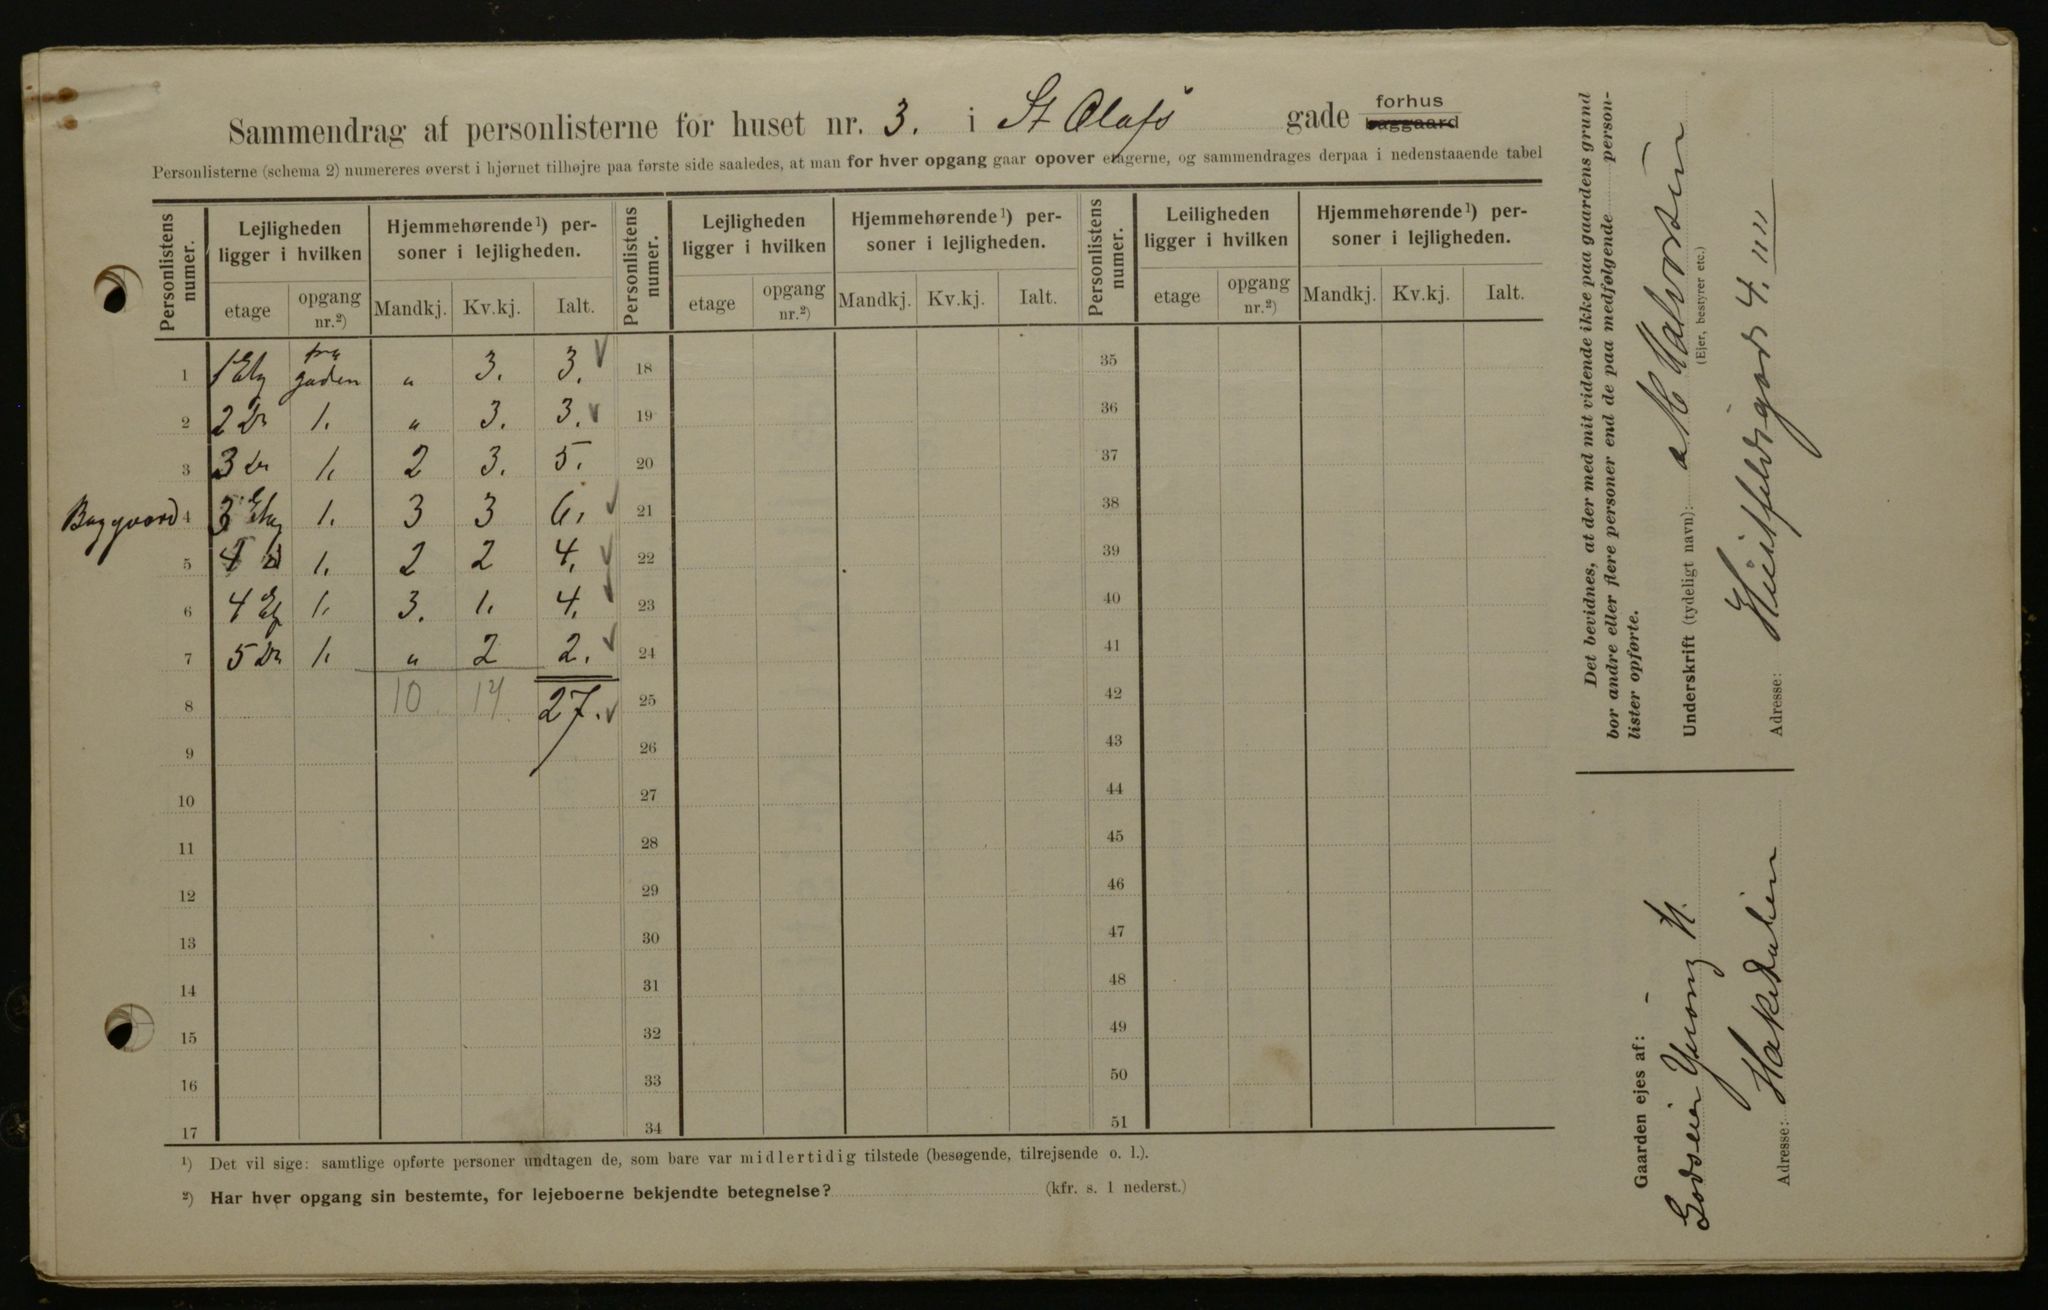 Sammendrag af personlisterne for huset nr. 3. i St Olafs gade forhus baggaard
Personlisterne (schema 2) numereres øverst i hjørnet tilhøjre paa første side saaledes, at man for hver opgang gaar opover etagerne, og sammendrages derpaa i nedenstaaende tabel
Personlistens numer. Lejligheden ligger i hvilken Hjemmehørende¹) personer i lejligheden. Personlistens numer. Lejligheden ligger i hvilken Hjemmehørende¹) personer i lejligheden. Personlistens numer. Leiligheden ligger i hvilken Hjemmehørende¹) personer i lejligheden.
etage opgang nr.²) Mandkj. Kv.kj. Ialt. etage opgang nr.²) Mandkj. Kv.kj. Ialt. etage opgang nr.²) Mandkj. Kv.kj. Ialt.
1 1 Etg fra gaden „ 3. 3. 18 35
2 2 Do 1. „ 3. 3. 19 36
3 3 Do 1. 2 3. 5. 20 37
Baggaard 4 3 Etag 1. 3 3 6. 21 38
5 4 1. 2 2 4. 22 39
6 4 Etg 1. 3. 1. 4. 23 40
7 5 Do 1. „ 2 2. 24 41
8 10 17 27. 25 42
9 26 43
10 27 44
11 28 45
12 29 46
13 30 47
14 31 48
15 32 49
16 33 50
17 34 51
¹) Det vil sige: samtlige opførte personer undtagen de, som bare var midlertidig tilstede (besøgende, tilrejsende o. l.).
²) Har hver opgang sin bestemte, for lejeboerne bekjendte betegnelse? (kfr. s. 1 nederst.)
Det bevidnes, at der med mit vidende ikke paa gaardens grund
bor andre eller flere personer end de paa medfølgende person-
lister opførte.
Underskrift (tydeligt navn): M Halvorsen
(Ejer, bestyrer etc.)
Adresse: Huitfeldtsgad 4. IIII
Gaarden ejes af:
Godseier Young
Adresse: Hakedalen